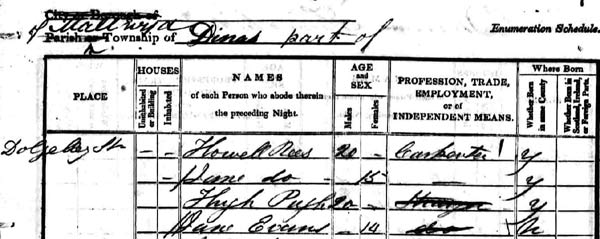 City or Borough of
of Mallwyd
Parish or Township of Dinas part of
Enumeration Schedule.
PLACE
HOUSES
Uninhabited or Building
Inhabited
NAMES
of each Person who abode therein
the preceding Night.
AGE
and
SEX
Males
Females
PROFESSION, TRADE,
EMPLOYMENT,
or of
INDEPENDENT MEANS.
Where Born
Whether Born in same County
Whether Born in Scotland, Ireland, or Foreign Parts.
Howell Rees 20 Carpenter y
Jane do 15 y
Hugh Pugh 20 y
Jane Evans 14 do N